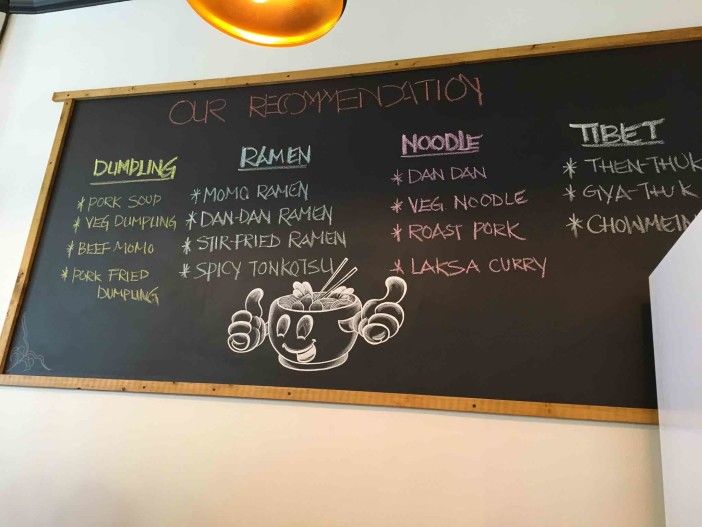 OUR RECOMMENDATION
DUMPLING
* PORK SOUP
* VEG DUMPLING
* BEEF MOMO
* PORK FRIED
DUMPLING
RAMEN
* MOMO RAMEN
* DAN-DAN RAMEN
* STIR-FRIED RAMEN
* SPICY TONKOTSU
NOODLE
* DAN DAN
* VEG NOODLE
* ROAST PORK
* LAKSA CURRY
TIBET
* THEN-THUK
* GYA-THUK
* CHOWMEIN